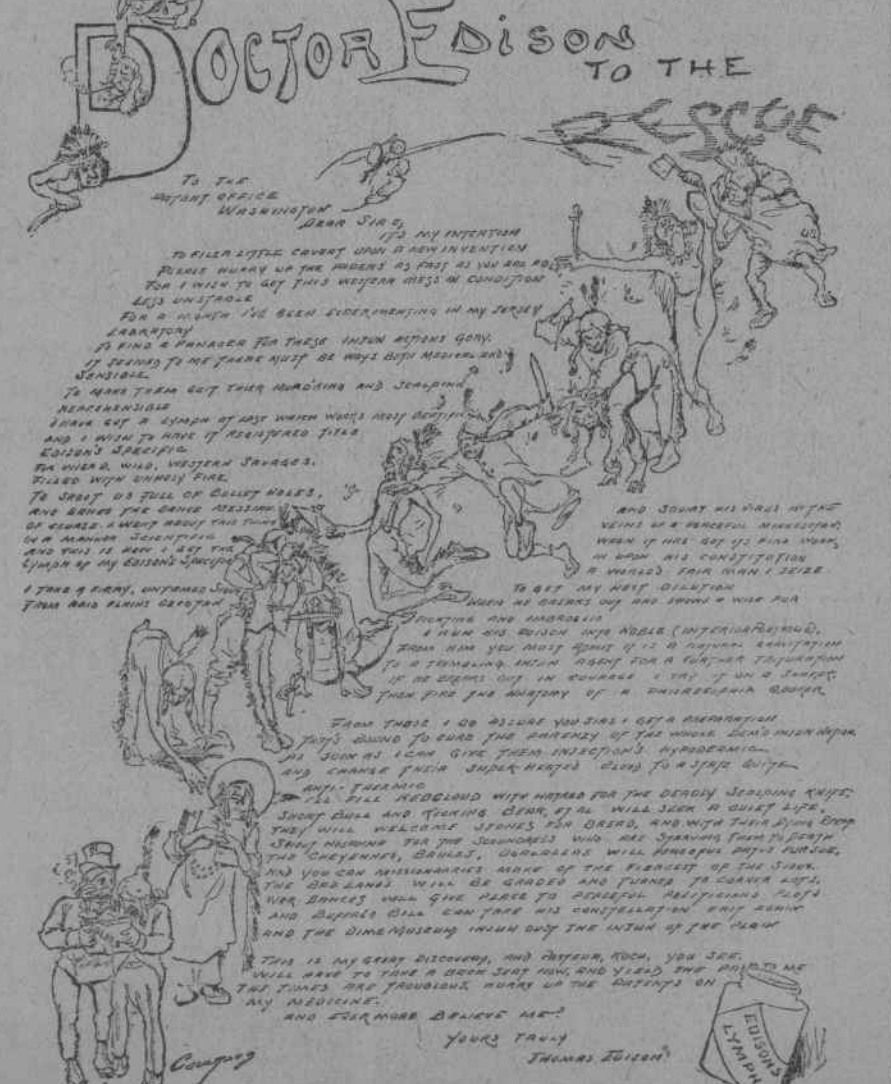 DOCTOR EDISON
TO THE
RESCUE
TO THE
PATENT OFFICE
WASHINGTON
DEAR SIRS,
IT'S MY INTENTION
TO FILE A LITTLE CAVEAT UPON A NEW INVENTION
PLEASE HURRY UP THE PAPERS AS FAST AS YOU ARE
FOR I WISH TO GET THIS WESTERN MESS IN CONDITION
LESS UNSTABLE
FOR A MONTH I'VE BEEN EXPERIMENTING IN MY JERSEY
LABRATORY
TO FIND A PANACEA FOR THESE INJUN ACTIONS GORY.
IT SEEMED TO ME THERE MUST BE WAYS BOTH MEDICAL AND
SENSIBLE
TO MAKE THEM QUIT THIER MURD'RING AND SCALPING
REPREHENSIBLE
I HAVE GOT A LYMPH AT LAST WHICH WORKS MOST
AND I WISH TO HAVE IT REGISTERED TITLE
EDISON'S SPECIFIC
FOR WIERD, WILD, WESTERN SAVAGES.
FILLED WITH UNHOLY FIRE
TO SHOOT US FULL OF BULLET HOLES,
AND DANCE THE DANCE MESSIAH
OF COURSE, I WENT ABOUT THIS THING
IN A MANNER SCIENTIFIC
AND THIS IS HOW I GOT THE
LYMPH OF MY EDISON'S SPECIFIC
I TAKE A FIERY, UNTAMED SIOUX
FROM ARID PLAINS
AND SQUIRT HIS VIRUS IN THE
VEINS OF A PEACEFUL MINNESOTAN,
WHEN IT HAS GOT ITS FINE WORK,
IN UPON HIS CONSTITUTION
A WORLD'S FAIR MAN I SEIZE
TO GET MY NEXT DILUTION
WHEN HE BREAKS OUT AND SHOWS A WISH FOR
FIGHTING AND IMBROGLIO
I RUN HIS POISON INTO NOBLE (INTERIOR PORTFOLIO),
FROM HIM YOU MUST ADMIT IT IS A NATURAL GRAVITATION
TO A TREMBLING INJUN AGENT FOR A FURTHER TRITURATION
IF HE BREAKS OUT IN COURAGE I TRY IT ON A SHAKER,
THEN FIRE THE ANATOMY OF A PHILADELPHIA QUAKER
FROM THESE I DO ASSURE YOU SIRS I GET A PREPARATION
THAT'S BOUND TO CURE THE PHRENZY OF THE WHOLE DEM'D INJUN NATION
AS SOON AS I CAN GIVE THEM INJECTION'S HYPODERMIC
AND CHANGE THEIR SUPER HEATED BLOOD TO A STATE QUITE
ANTI-THERMIC
I'LL FILL REDCLOUD WITH HATRED FOR THE DEADLY SCALPING KNIFE;
SHORT BULL AND KICKING BEAR, ET AL WILL SEEK A QUIET LIFE,
THEY WILL WELCOME STONES FOR BREAD, AND WITH THEIR DYING BREATH
SHOUT HOSANNA FOR THE SCOUNDRELS WHO ARE STARVING THEM TO DEATH
THE CHEYENNES, BRULES, OGALALLAS WILL PEACEFUL PATHS PURSUE,
AND YOU CAN MISSIONARIES MAKE OF THE FIERCEST OF THE SIOUX
THE BAD LANDS WILL BE GRADED AND TURNED TO CORNER LOTS,
WAR DANCES WILL GIVE PLACE TO PEACEFUL POLITICIANS PLOTS
AND BUFFALO BILL CAN TAKE HIS CONSTELLATION EAST AGAIN
AND THE DIME MUSEUM INJUN OUST THE INJUN OF THE PLAIN
THIS IS MY GREAT DISCOVERY, AND PASTEUR, KOCH, YOU SEE,
WILL HAVE TO TAKE A BACK SEAT NOW, AND YIELD THE PALM TO ME
THE TIMES ARE TROUBLOUS, HURRY UP THE PATENTS ON
MY MEDICINE.
AND EVERMORE BELIEVE ME!
YOURS TRULY
THOMAS EDISON
EDISONS
LYMPH